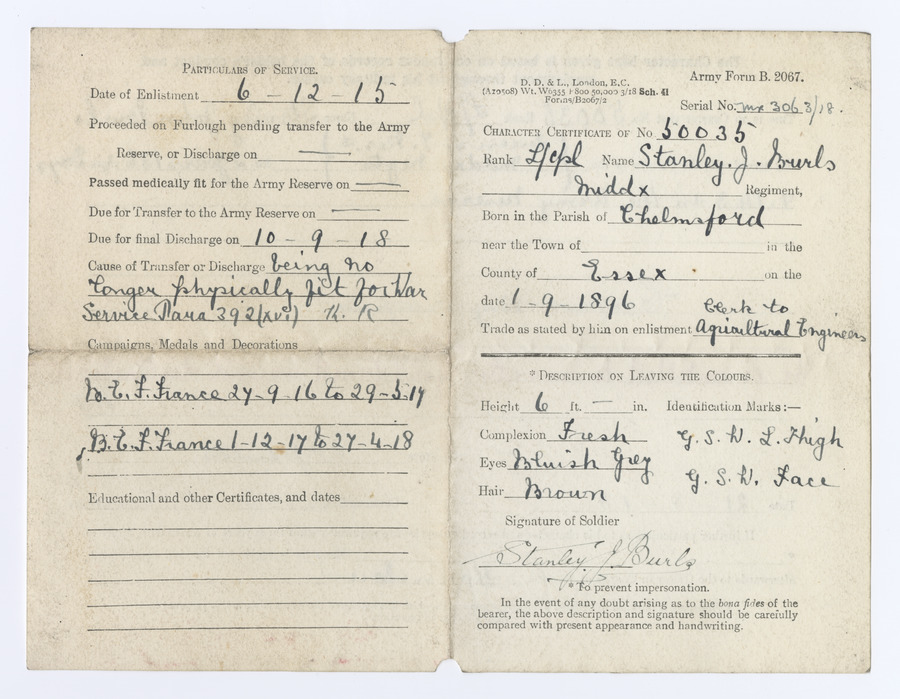 PARTICULARS OF SERVICE.
Date of Enlistment 6 - 12 - 15
Proceeded on Furlough pending transfer to the Army
Reserve, or Discharge on —
Passed medically fit for the Army Reserve on —
Due for Transfer to the Army Reserve on —
Due for final Discharge on 10 - 9 - 18
Cause of Transfer or Discharge being no
longer physically fit for War
Service Para 392(xvi) K. R
Campaigns, Medals and Decorations
B. E. F. France 27-9-16 to 29-5-17
B. E. F. France 1-12-17 to 27-4-18
Educational and other Certificates, and dates
D. D. & L., London, E.C.
(A20508) Wt. W6355 P800 50,000 3/18 Sch. 41
Forms/B2067/2
Army Form B. 2067.
Serial No. mx 3063/18.
CHARACTER CERTIFICATE OF No. 50035
Rank L/cpl Name Stanley. J. Burls
Middx Regiment,
Born in the Parish of Chelmsford
near the Town of in the
County of Essex on the
date 1-9-1896
Clerk to
Trade as stated by him on enlistment Agricultural Engineers
* DESCRIPTION ON LEAVING THE COLOURS.
Height 6 ft. — in. Identification Marks:—
Complexion Fresh G. S. W. L. Thigh
Eyes Bluish Grey
G. S. W. Face
Hair Brown
Signature of Soldier
Stanley J Burls
* To prevent impersonation.
In the event of any doubt arising as to the bona fides of the
bearer, the above description and signature should be carefully
compared with present appearance and handwriting.